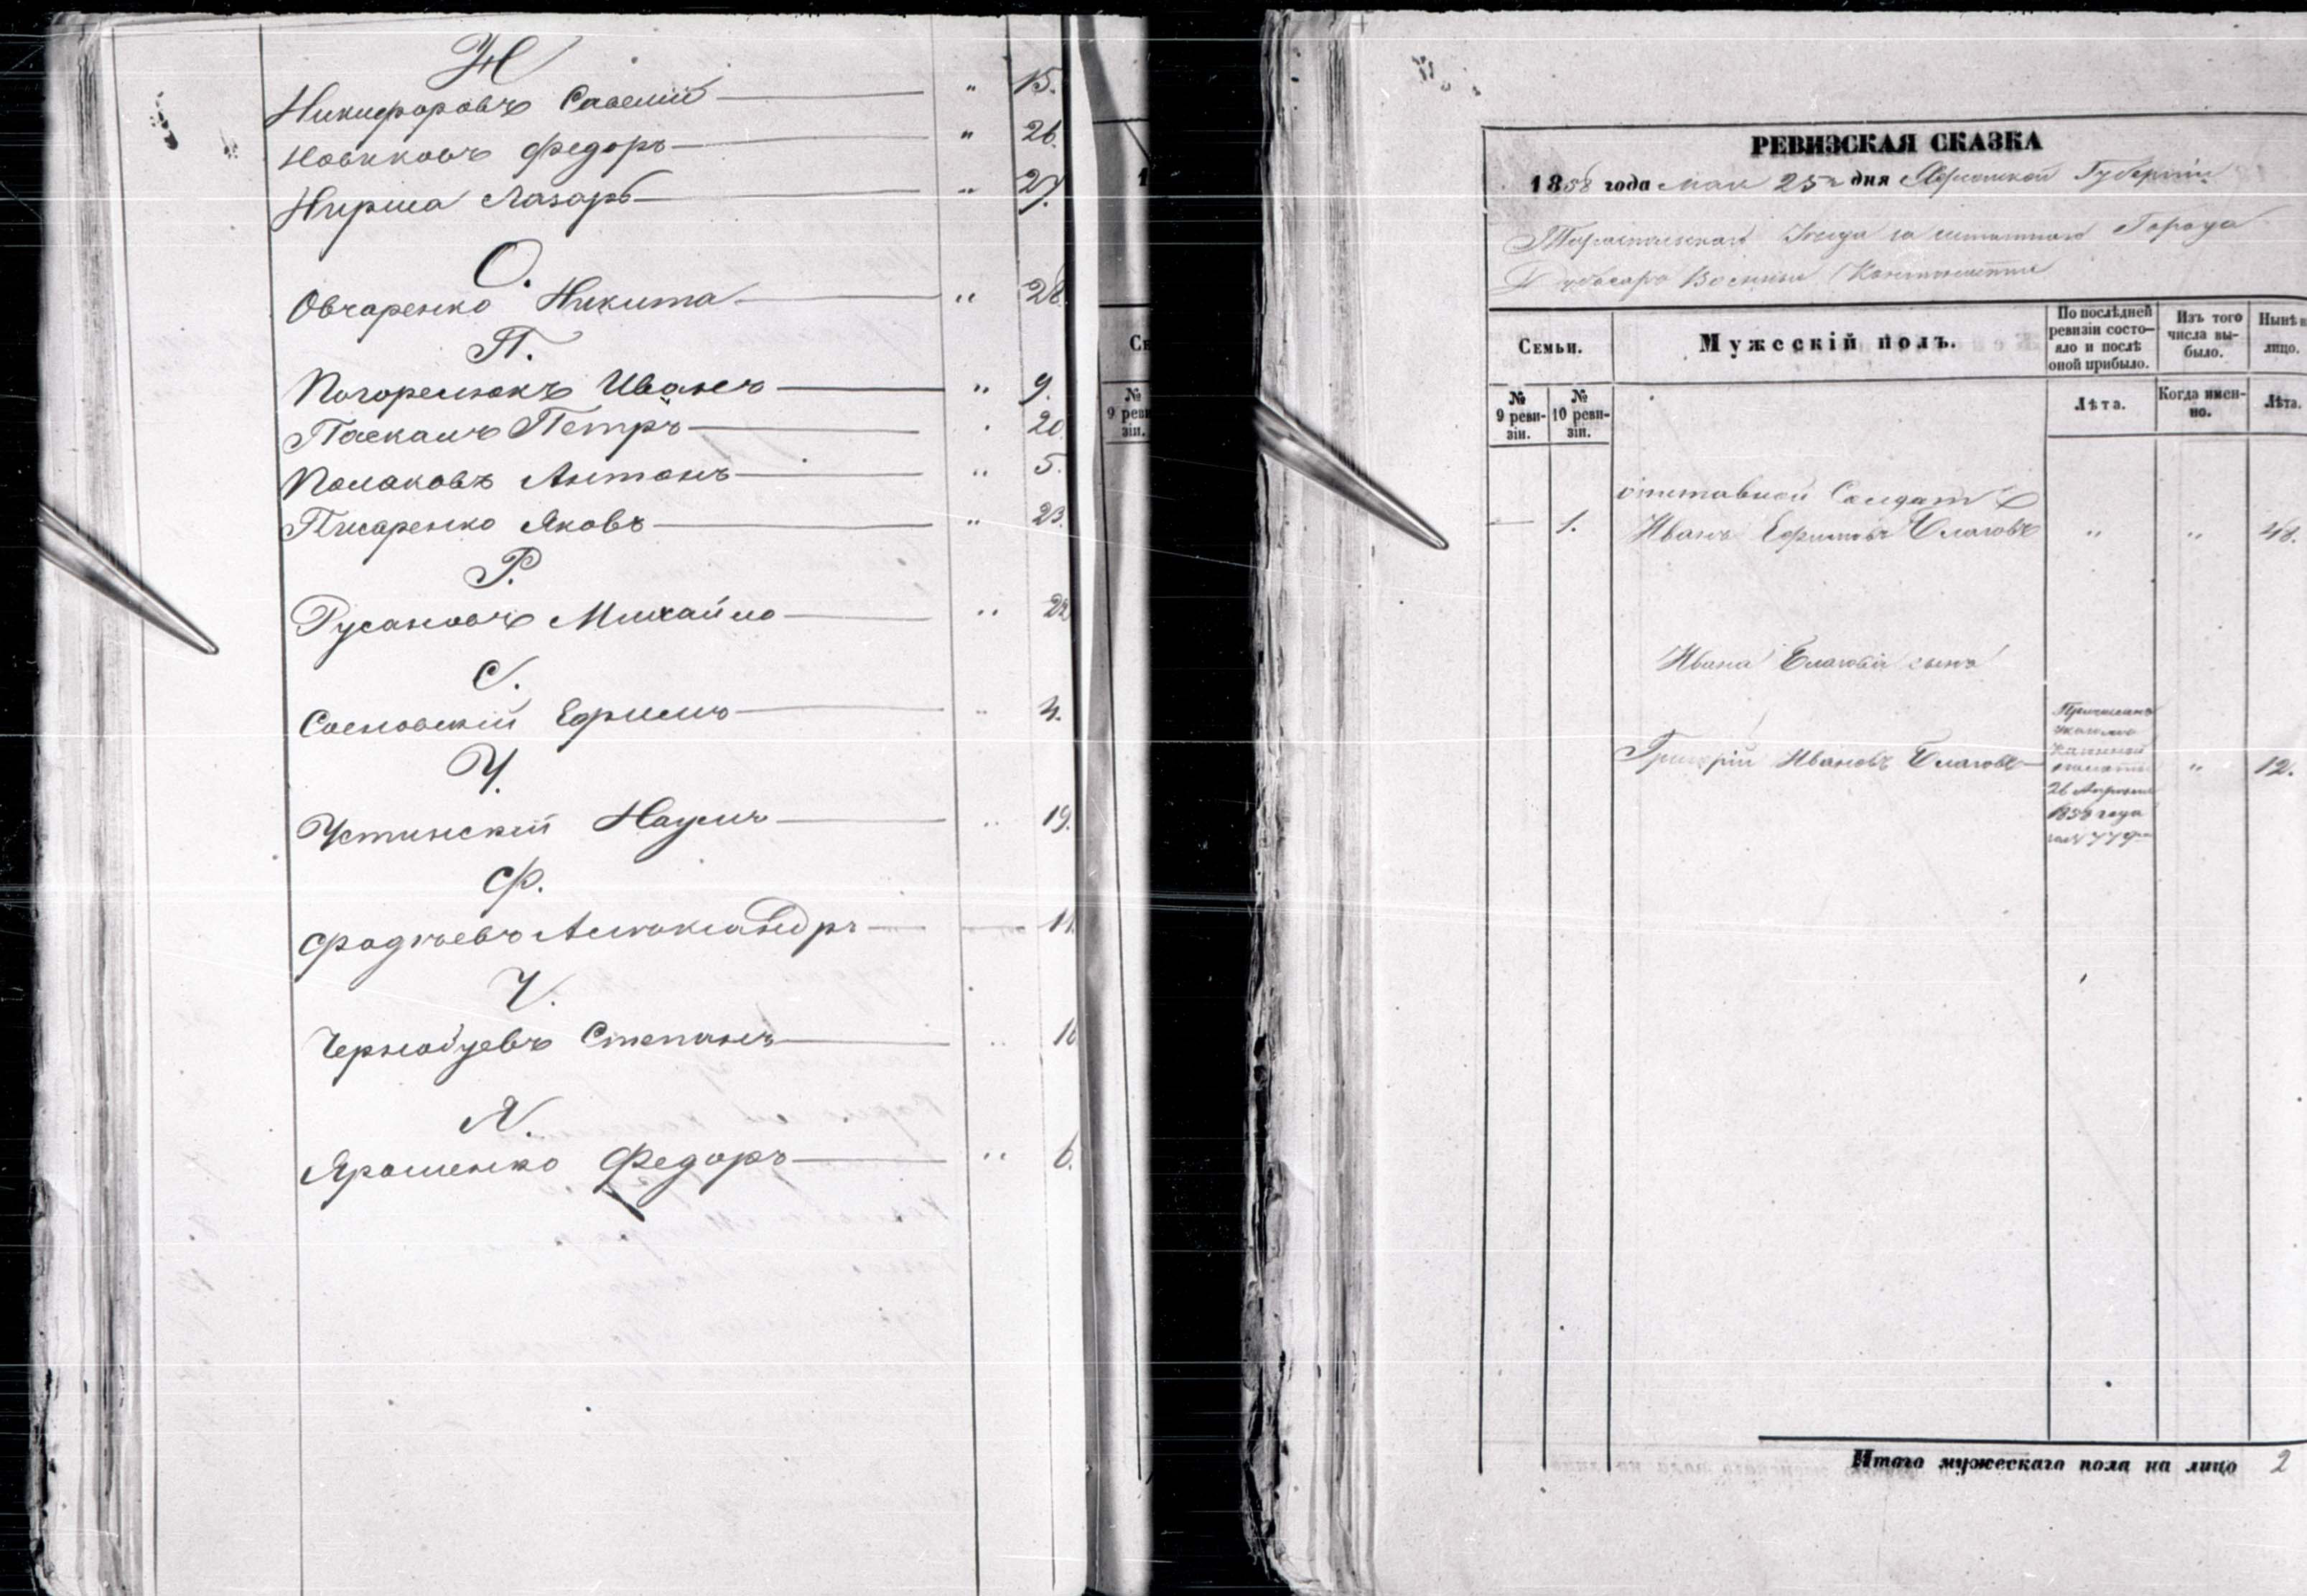 Н
Никифоровъ Савелий — " 15.
Новиковъ Федоръ — " 26.
Нирша Лазарь — " 27.
О.
Овчаренко Никита — " 28.
П.
Погорелюкъ Иванъ — " 9.
Паскалъ Петръ — . 20
Полаковъ Антонъ — " 5.
Писаренко Яковъ — " 23.
Р.
Русановъ Михайло — " 22
С.
Сосновскій Ефимъ — " 4.
У.
Устинскій Наумъ — " 19.
Ф.
Фадѣевъ Александръ — 11.
Ч.
Черно Степанъ — " 1
Я.
Ярошенко Федоръ — " 6.
Се
№
9 реви
зіи.
РЕВИЗСКАЯ СКАЗКА
1858 года мая 25го дня Херсонской Губерніи
Тираспольскаго Уезда заштатнаго Города
Дубосаръ
Семьи.
Мужескій полъ.
По послѣдней ревизіи состо-яло и послѣ оной прибыло.
Изъ того числа вы-было.
Нынѣ н лицо.
№ 9 реви-зіи.
№ 10 реви-зіи.
Лѣта.
Когда имен-но.
Лѣта.
отставной Солдатъ
— 1. Иванъ Ефимовъ " " 48.
Ивана сынъ
Григорій Ивановъ — " 12.
Причисленъ
указомъ
Казенной
палаты
26 Апреля
1858 года
Итого мужескаго пола на лицо 2